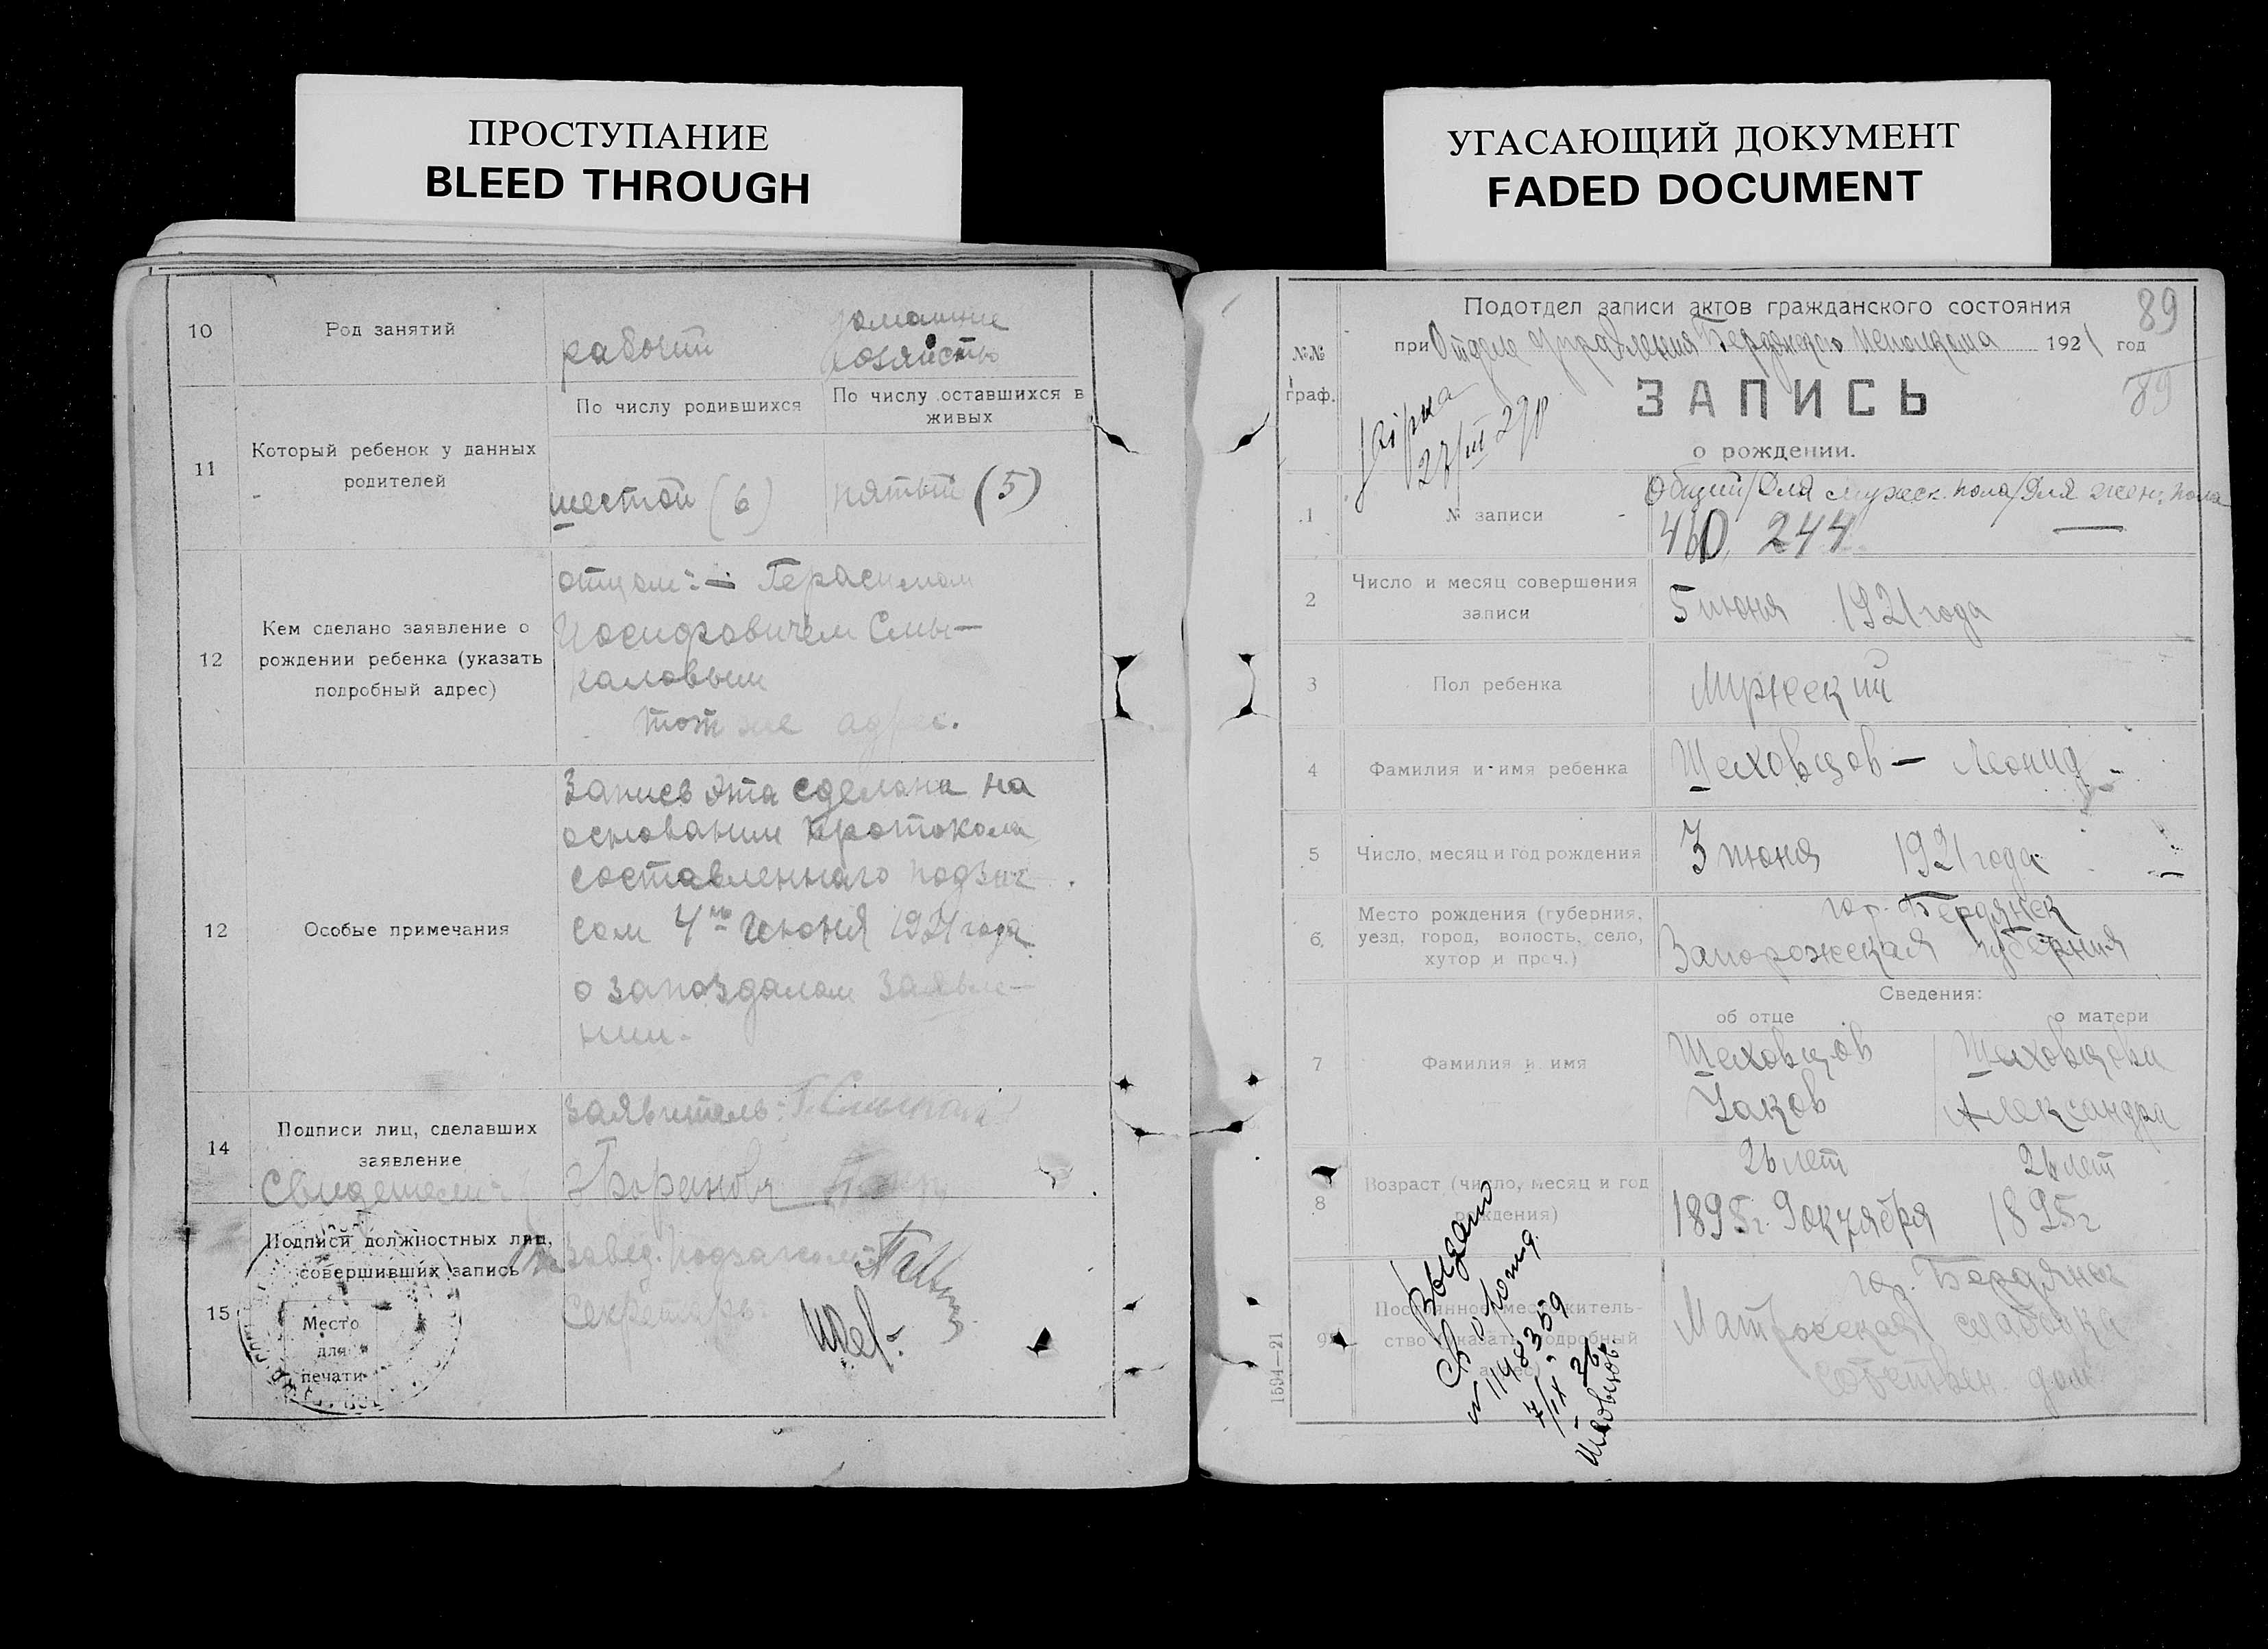 ПРОСТУПАНИЕ
BLEED THROUGH
10
Род занятий
рабочий
домашние
хозяйство
11
Который ребенок у данных
родителей
По числу родившихся
По числу оставшихся в
живых
шестой (6)
пятый (5)
12
Кем сделано заявление о
рождении ребенка (указать
подробный адрес)
отцом: — Герасимом
Иосифовичем Смы-
каловым
тот же адрес.
12
Особые примечания
Запись эта сделана на
основании протокола
составленнаго подзаг
сом 4го Июня 1921 года
о запоздалом заявле-
нии.
14
Подписи лиц, сделавших
заявление
Свидетели:
заявитель:
15
Подписи должностных лиц,
совершивших запись
Место
для
печати
Завед. подзагсом
Секретарь
УГАСАЮЩИЙ ДОКУМЕНТ
FADED DOCUMENT
89
Подотдел записи актов гражданского состояния
при Отделе Управления Бердянского Исполкома 1921 год
89
№№
граф.
ЗАПИСЬ
о рождении.
27/III 29р
1
№ записи
Общий/Для мужск. пола/Для женс. пола
460 244 —
2
Число и месяц совершения
записи
5 июня 1921 года
3
Пол ребенка
Мужеский
4
Фамилия и имя ребенка
Шеховцов — Леонид
5
Число, месяц и год рождения
3 июня 1921 года
6.
Место рождения (губерния,
уезд, город, волость, село,
хутор и проч.)
гор. Бердянск
Запорожская губерния
Сведения:
об отце
о матери
7
Фамилия и имя
Шеховцов
Яков
Шеховцова
Александра
8
Возраст (число, месяц и год
рождения)
26 лет
1895г. 9 октября
26 лет
1895г
9
Постоянное местожитель-
ство (указать подробный
адрес)
гор. Бердянск
Матросская слободка
собствен. дом
Выдано
св о рожд.
№ 1198359
7/IX 26
1594—21